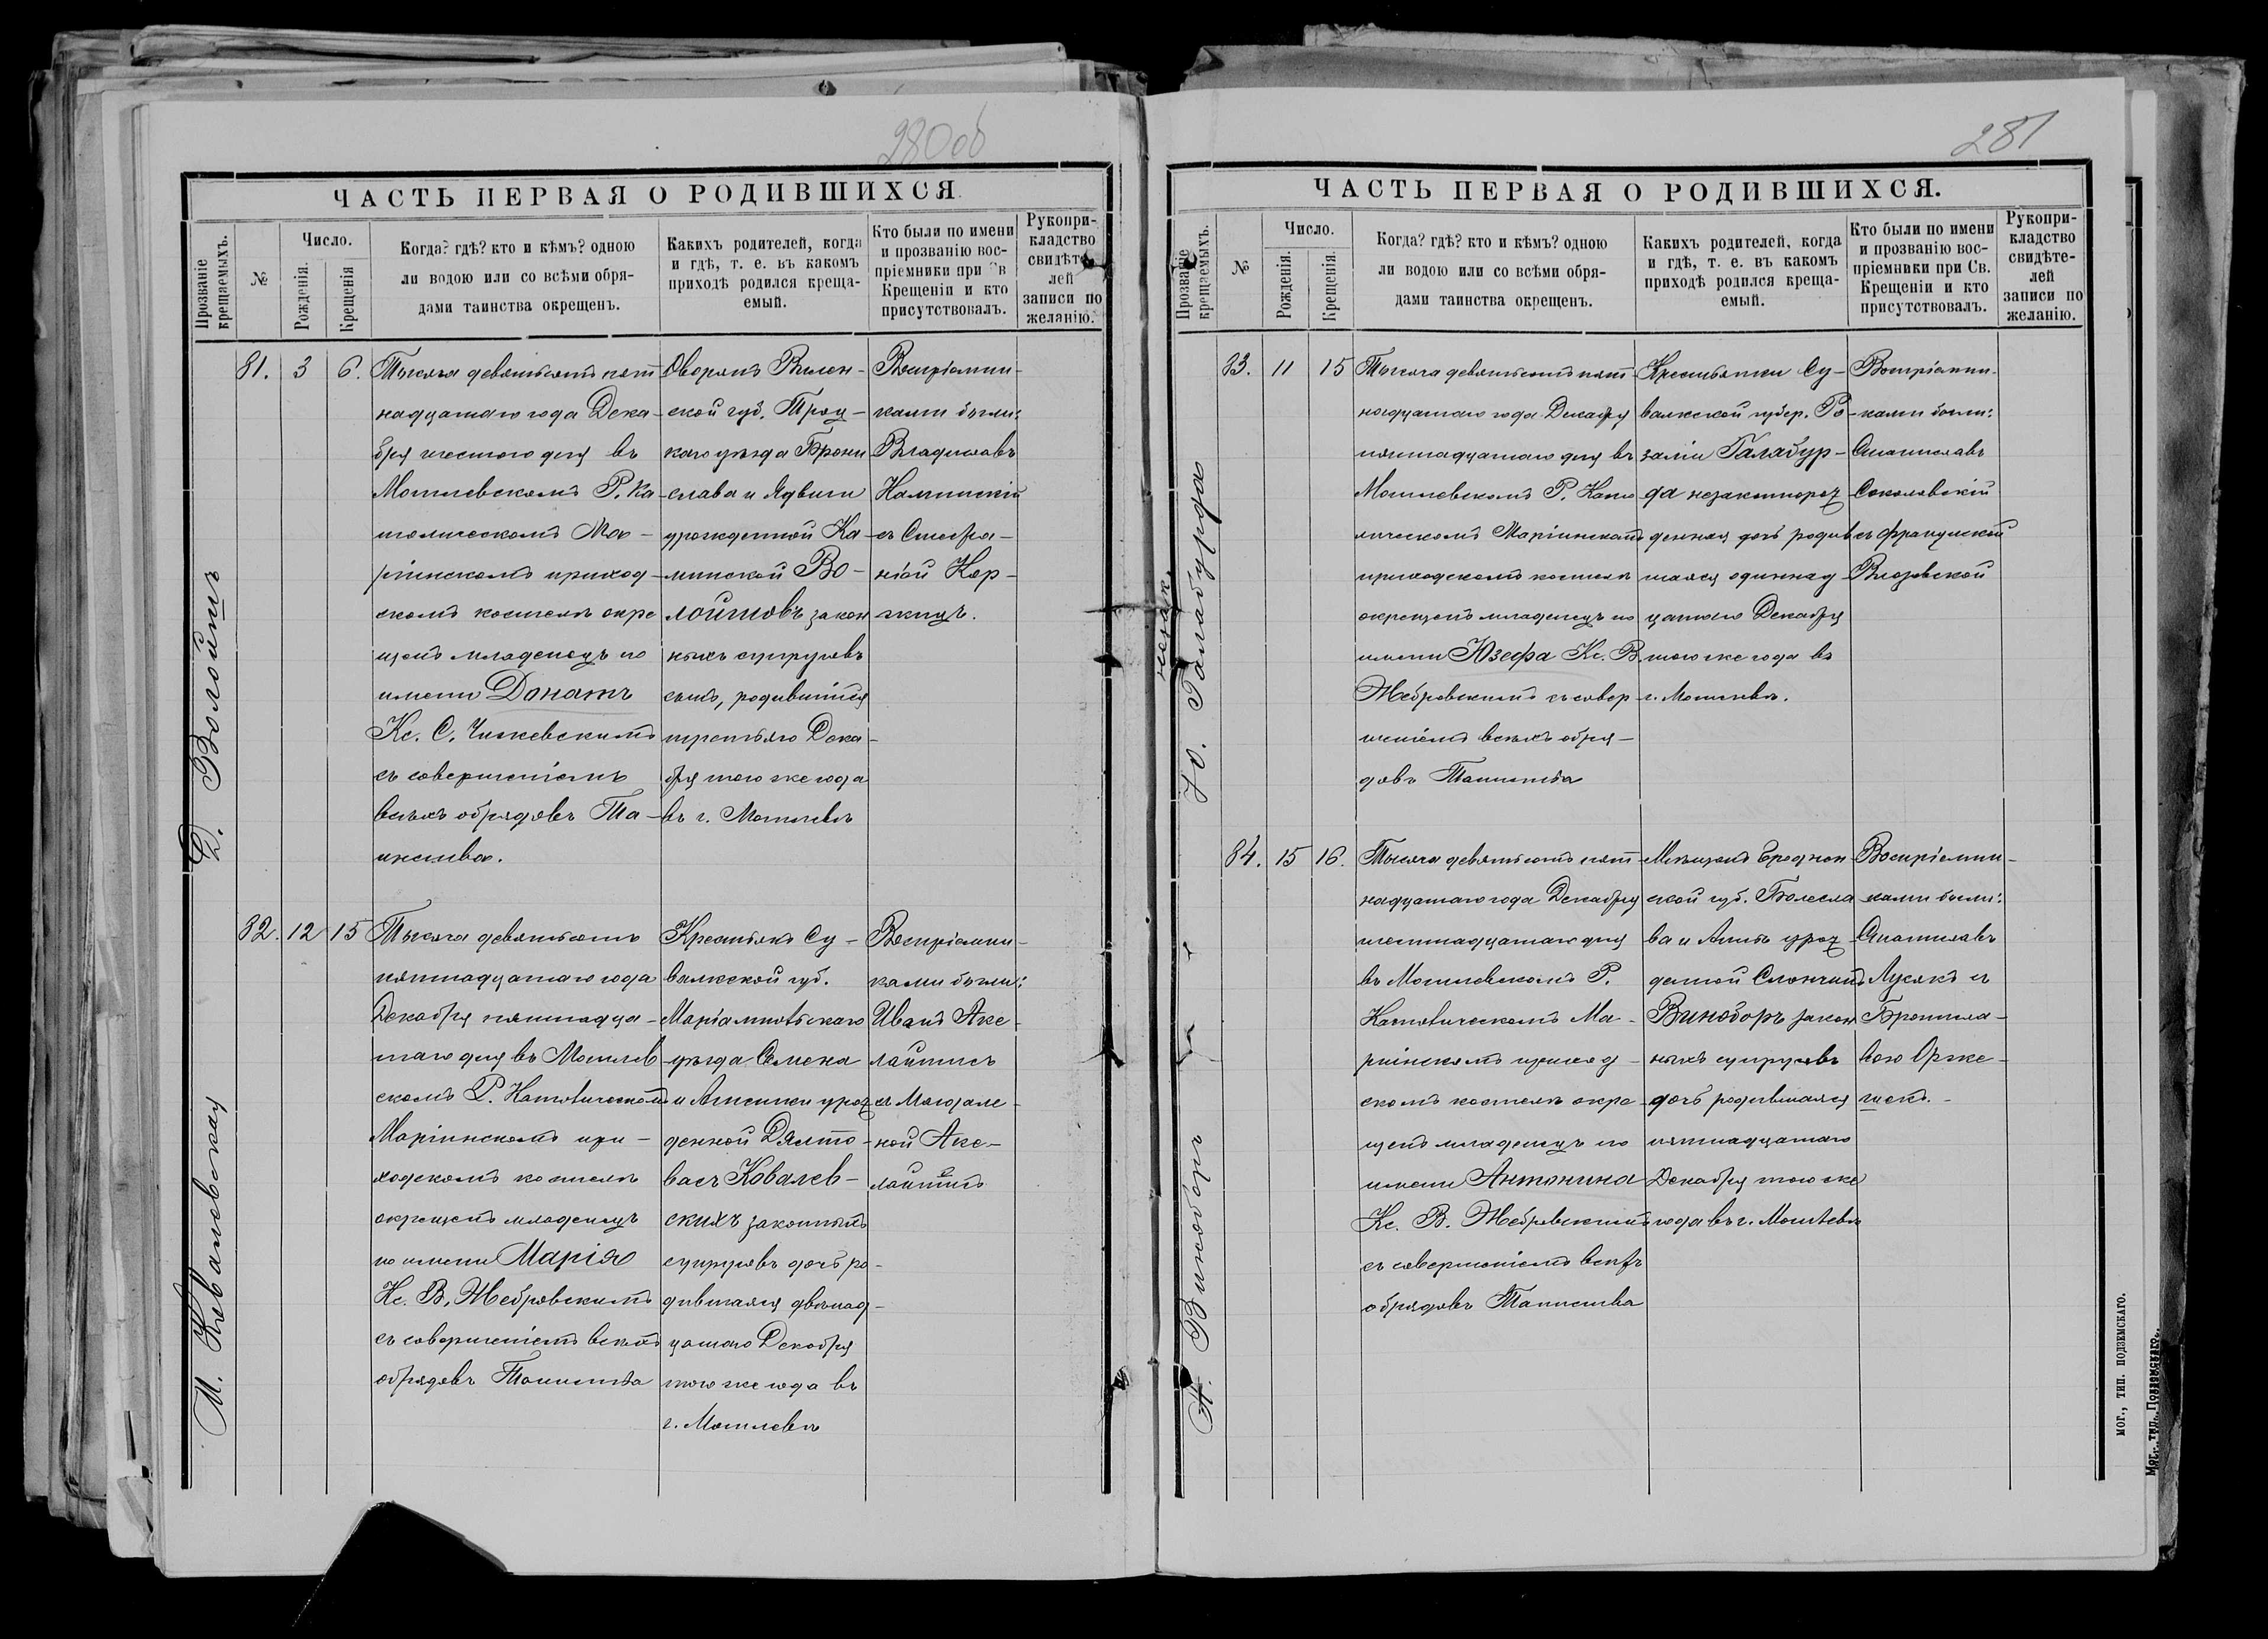 280об
ЧАСТЬ ПЕРВАЯ О РОДИВШИХСЯ.
Прозваніе крещаемыхъ.
№
Число.
Рожденія.
Крещенія
Когда? гдѣ? кто и кѣмъ? одною
ли водою или со всѣми обря-
дами таинства окрещенъ.
Какихъ родителей, когда
и гдѣ, т. е. въ какомъ
приходѣ родился креща-
емый.
Кто были по имени
и прозванію вос-
пріемники при Св
Крещеніи и кто
присутствовалъ.
Рукопри-
кладство
свидѣте-
лей
записи по
желанію.
Д. Волойшъ
81. 3 6.
Тысяча девятьсотъ пят
надцатаго года Дека-
бря шестого дня въ
Могилевскомъ Р. Ка-
толическомъ Ма-
ріинскомъ приход-
скомъ костелѣ окре
щенъ младенецъ по
имени Донатъ
Кс. С. Чижевскимъ
съ совершеніемъ
всѣхъ обрядовъ Та-
инства.
Дворянъ Вилен-
ской губ. Троц-
каго уѣзда Брони
слава и Ядвиги
урожденной Ка-
минской Во-
лойшовъ закон
ныхъ супруговъ
сынъ, родившійся
третьяго Дека-
бря того же года
въ г. Могилевѣ
Воспріемни-
ками были:
Владиславъ
съ Стефа-
ніей Кор-
М. Ковалевская
82. 12 15
Тысяча девятьсотъ
пятнадцатаго года
Декабря пятнадца-
таго дня въ Могилев
скомъ Р. Католическомъ
Маріинскомъ при-
ходскомъ костелѣ
окрещенъ младенецъ
по имени Марія
Кс. В. Жебровскимъ
съ совершеніемъ всѣхъ
обрядовъ Таинства
Крестьянъ Су-
валкской губ.
Маріампольскаго
уѣзда Семена
и Агнешки урож
денной Дялто-
васъ Ковалев-
скихъ законныхъ
супруговъ дочь ро-
дившаяся двѣнад-
цатаго Декабря
того же года въ
г. Могилевѣ
Воспріемни-
ками были:
Иванъ Аксе-
лайтисъ
съ Магдале-
ной Аксе-
лайтисъ
281
ЧАСТЬ ПЕРВАЯ О РОДИВШИХСЯ.
Прозваніе крещаемыхъ.
№
Число.
Рожденія.
Крещенія.
Когда? гдѣ? кто и кѣмъ? одною
ли водою или со всѣми обря-
дами таинства окрещенъ.
Какихъ родителей, когда
и гдѣ, т. е. въ какомъ
приходѣ родился креща-
емый.
Кто были по имени
и прозванію вос-
пріемники при Св.
Крещеніи и кто
присутствовалъ.
Рукопри-
кладство
свидѣте-
лей
записи по
желанію.
незак.
Ю. Галабурда
83. 11 15
Тысяча девятьсотъ пят-
надцатаго года Декабря
пятнадцатаго дня въ
Могилевскомъ Р. Като
лическомъ Маріинскомъ
приходскомъ костелѣ
окрещенъ младенецъ по
имени Юзефа Кс. В.
Жебровскимъ съ совер-
шеніемъ всѣхъ обря-
довъ Таинства
Крестьянки Су-
валкской губер. Ро-
заліи Галабур-
да незаконнорож
денная дочь родив
шаяся одиннад
цатаго Декабря
того же года въ
г. Могилевѣ.
Воспріемни-
ками были:
Станиславъ
Соколовскій
съ Францишкой
84. 15 16.
А. Виноборъ
Тысяча девятьсотъ пят-
надцатаго года Декабря
шестнадцатаго дня
въ Могилевскомъ Р.
Католическомъ Ма-
ріинскомъ приход-
скомъ костелѣ окре-
щенъ младенецъ по
имени Антонина
Кс. В. Жебровскимъ
съ совершеніемъ всѣхъ
обрядовъ Таинства
Мѣщанъ Гроднен
ской губ. Болесла
ва и Анны урож
денной
Виноборъ закон
ныхъ супруговъ
дочь родившаяся
пятнадцатаго
Декабря того же
года въ г. Могилевѣ
Воспріемни-
ками были:
Станиславъ
Лусякъ съ
Брониславою Орже-
шекъ.
МОГ., ТИП. ПОДЗЕМСКАГО.
Мог., тип. Подземскаго.